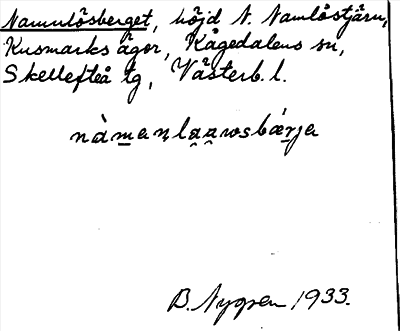 Namnlösberget, höjd N. Namlöstjärn,
Kusmarks ägor, Kågedalens sn,
Skellefteå tg, Västerb. l.
nàmanla̯a̯wosbárja
B. Nygren 1933.